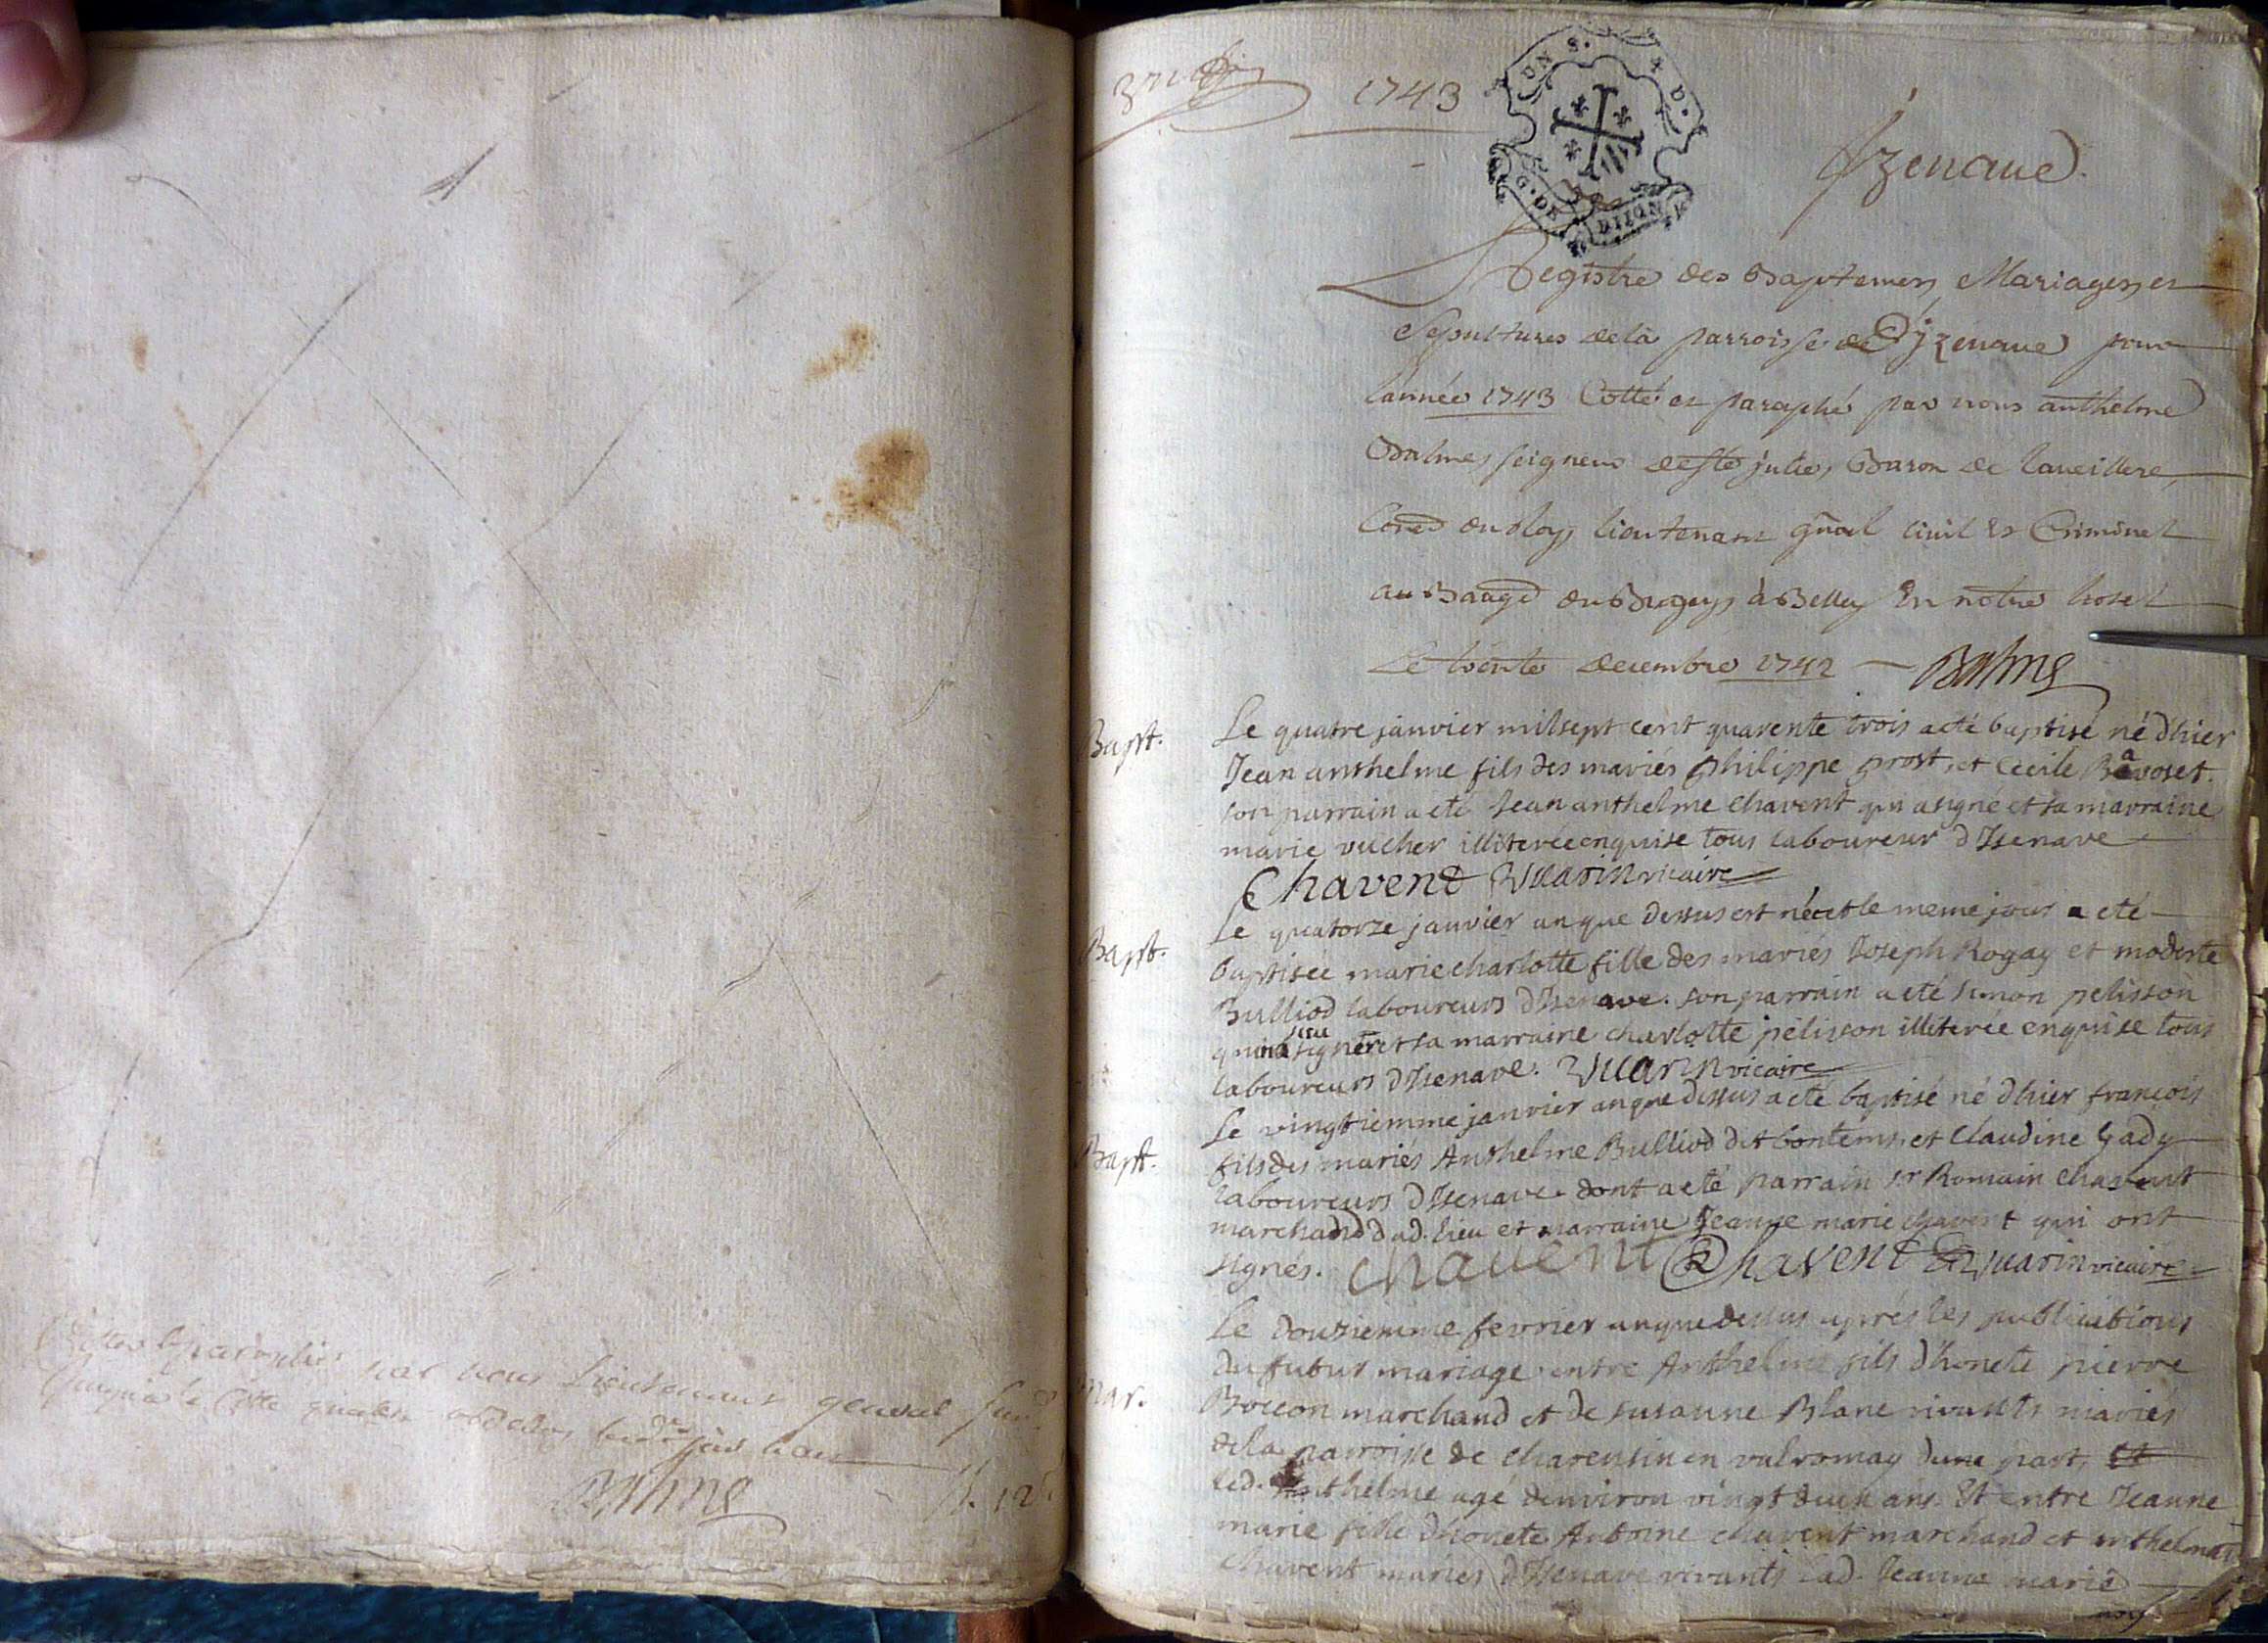 par nous Lieutenant general
Balme
1743
UN S.
G. DE DIJON
Izenave.
Registre des Baptemes, Mariages, et
Sepultures de la parroisse de Dyzenave pour
l'année 1743 Cotté et paraphé par nous anthelme
Balme, seigneur de ste julie, Baron de Laveillere,
Lieutenant gñal Civil et Criminel
au Baage du Bugey à Belley En notre hotel
Le trente decembre 1742 — Balme
Bapt.
Le quatre janvier milsept cent quarente trois a eté baptisé né d'hier
Jean anthelme fils des mariés philippe prost, et Cecile Bavoset.
son parrain a eté Jean anthelme Chavent qui a signé et sa marraine
marie vucher illiterée enquise tous laboureur d'Isenave
Chavent Vuarin vicaire
Bapt.
Le quatorze janvier an que dessus est née et le meme jour a eté
baptisée marie charlotte fille des mariés Joseph Rogay et modeste
Bulliod laboureurs d'Isenave. son parrain a eté simon pelisson
qui n'a sçu signer et sa marraine charlotte pelisson illiterée enquise tous
laboureurs d'Isenave. Vuarin vicaire
Bapt.
Le vingtiemme janvier an que dessus a eté baptisé né d'hier françois
fils des mariés Anthelme Bulliod dit bontems, et Claudine Gady
laboureurs d'Isenave dont a eté parrain sr Romain Chavent
marchand dud. lieu et marraine Jeanne marie chavent qui ont
signés. chavent Chavent Vuarin vicaire
mar.
Le douziemme fevrier an que dessus après les publications
du futur mariage entre Anthelme fils d'honete pierre
Boccon marchand et de susanne Blanc vivants mariés
de la parroisse de charensin en valromay d'une part, et
led. Anthelme agé d'environ vingt deux ans. Et entre Jeanne
marie fille d'honete Antoine chavent marchand et anthelmaz
chavent mariés d'Isenave vivants lad. Jeanne marie